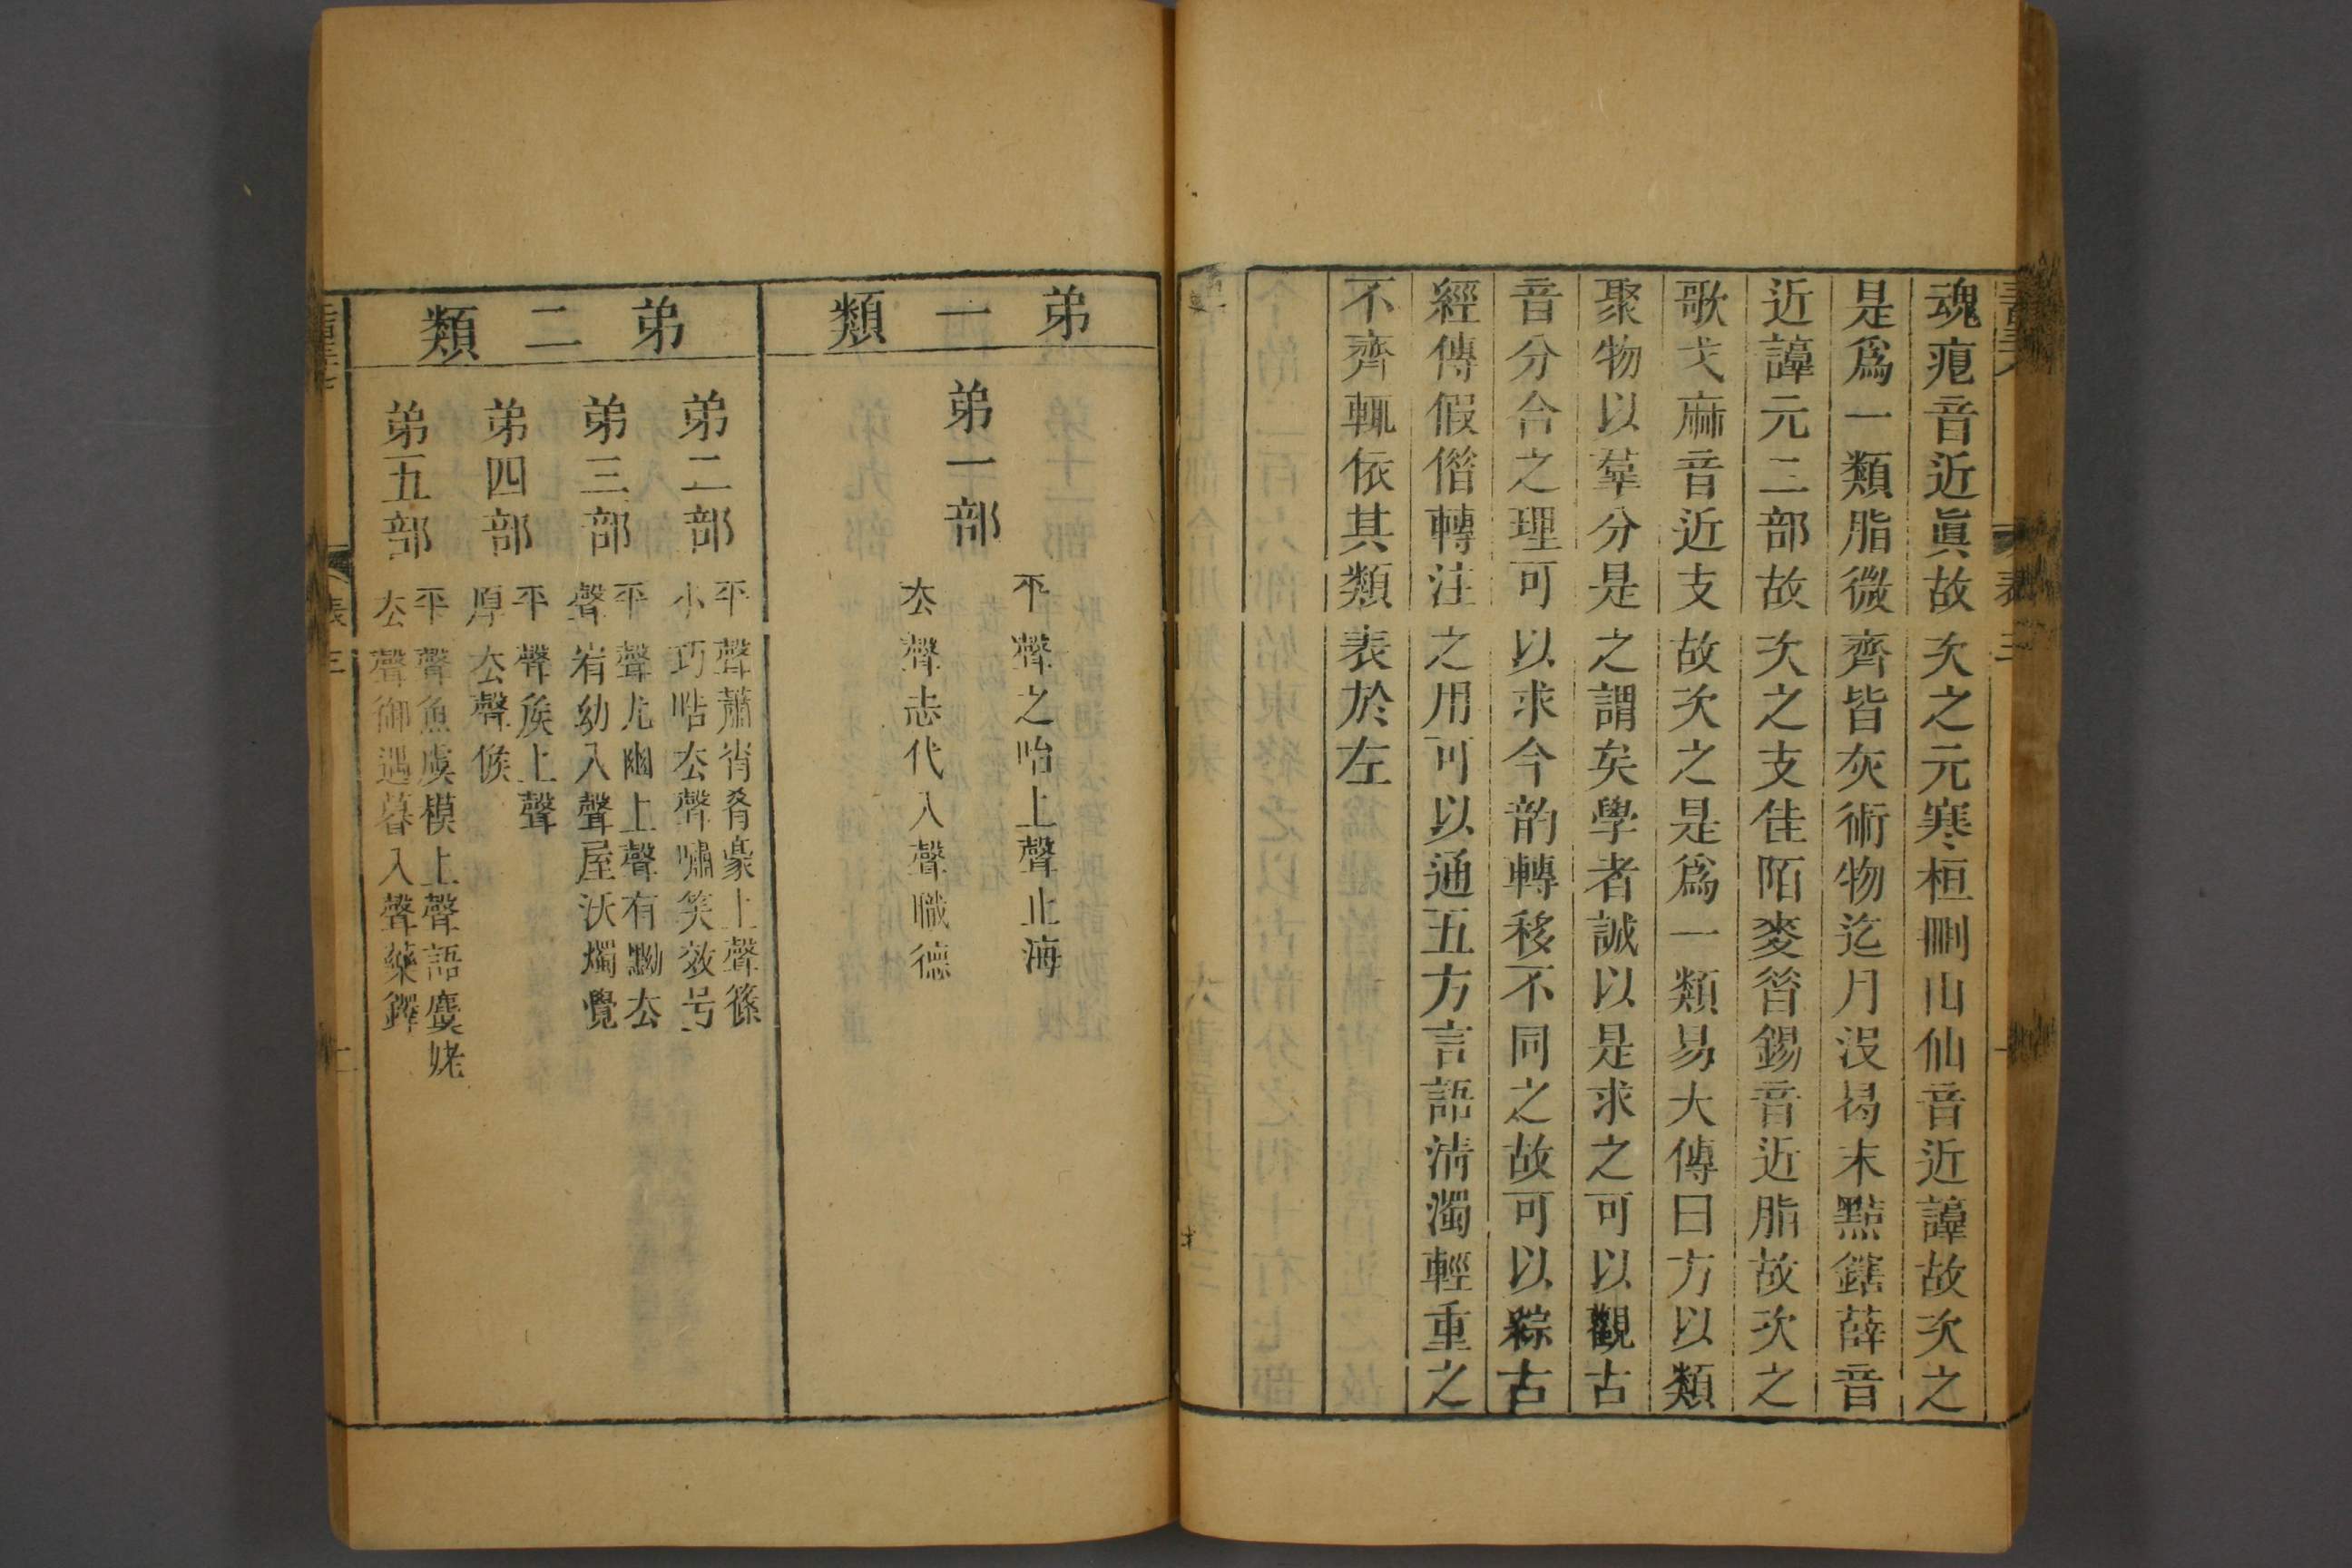 魂痕音近眞故次之元寒桓刪山仙音近諄故次之
是爲一類脂微齊皆灰術物迄月沒曷末黠鎋薛音
近諄元二部故次之支佳陌麥昔錫音近脂故次之
歌戈麻音近支故次之是爲一類易大傳曰方以類
聚物以羣分是之謂矣學者誠以是求之可以觀古
音分合之理可以求今韵轉移不同之故可以綜古
經傳假借轉注之用可以通五方言語淸濁輕重之
不齊輒依其類表於左
弟一類
弟一部
平聲之咍上聲止海
厺聲志代入聲職德
弟二類
弟二部
平聲蕭宵肴豪上聲篠
小巧晧厺聲嘯笑效号
弟三部
平聲尤幽上聲有黝厺
聲宥幼入聲屋沃燭覺
弟四部
平聲矦上聲
厚厺聲候
弟五部
平聲魚虞模上聲語麌姥
厺聲御遇暮入聲藥鐸
表三